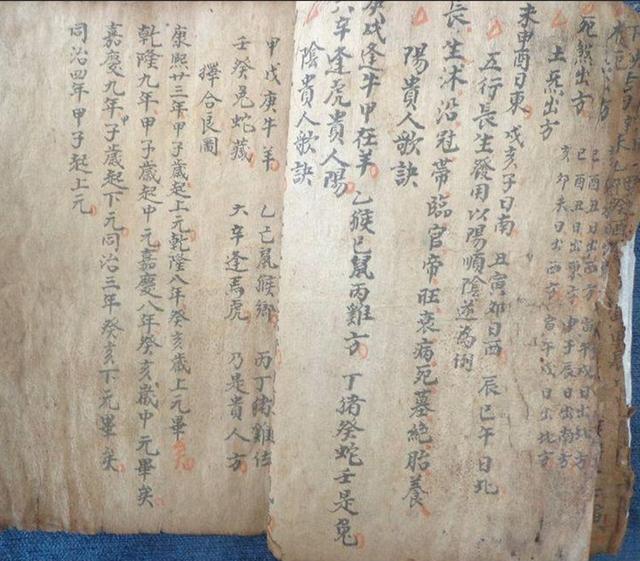 死炁出方
巳酉丑日出東方 申子辰日出南方
亥卯未日出西方 寅午戌日出北方
土炁出方
未申酉日東 戌亥子日南 丑寅卯日西 辰巳午日北
五行長生發用以陽順陰逆為例
長生沐沿冠帶臨官帝旺衰病死墓絕胎養
陽貴人歌訣
庚戌逢牛甲在羊 乙猴巳鼠丙雞方 丁猪癸蛇壬是兔
六辛逢虎貴人陽
陰貴人歌訣
甲戊庚牛羊 乙己鼠猴鄉 丙丁猪雞位
壬癸兔蛇藏 六辛逢馬虎 乃是貴人方
擇合良圖
康熙廿三年甲子歲起上元乾隆八年癸亥歲上元畢
乾隆九年甲子歲起中元嘉慶八年癸亥歲中元畢矣
嘉慶九年子歲起下元同治三年癸亥下元畢矣
同治四年甲子起上元